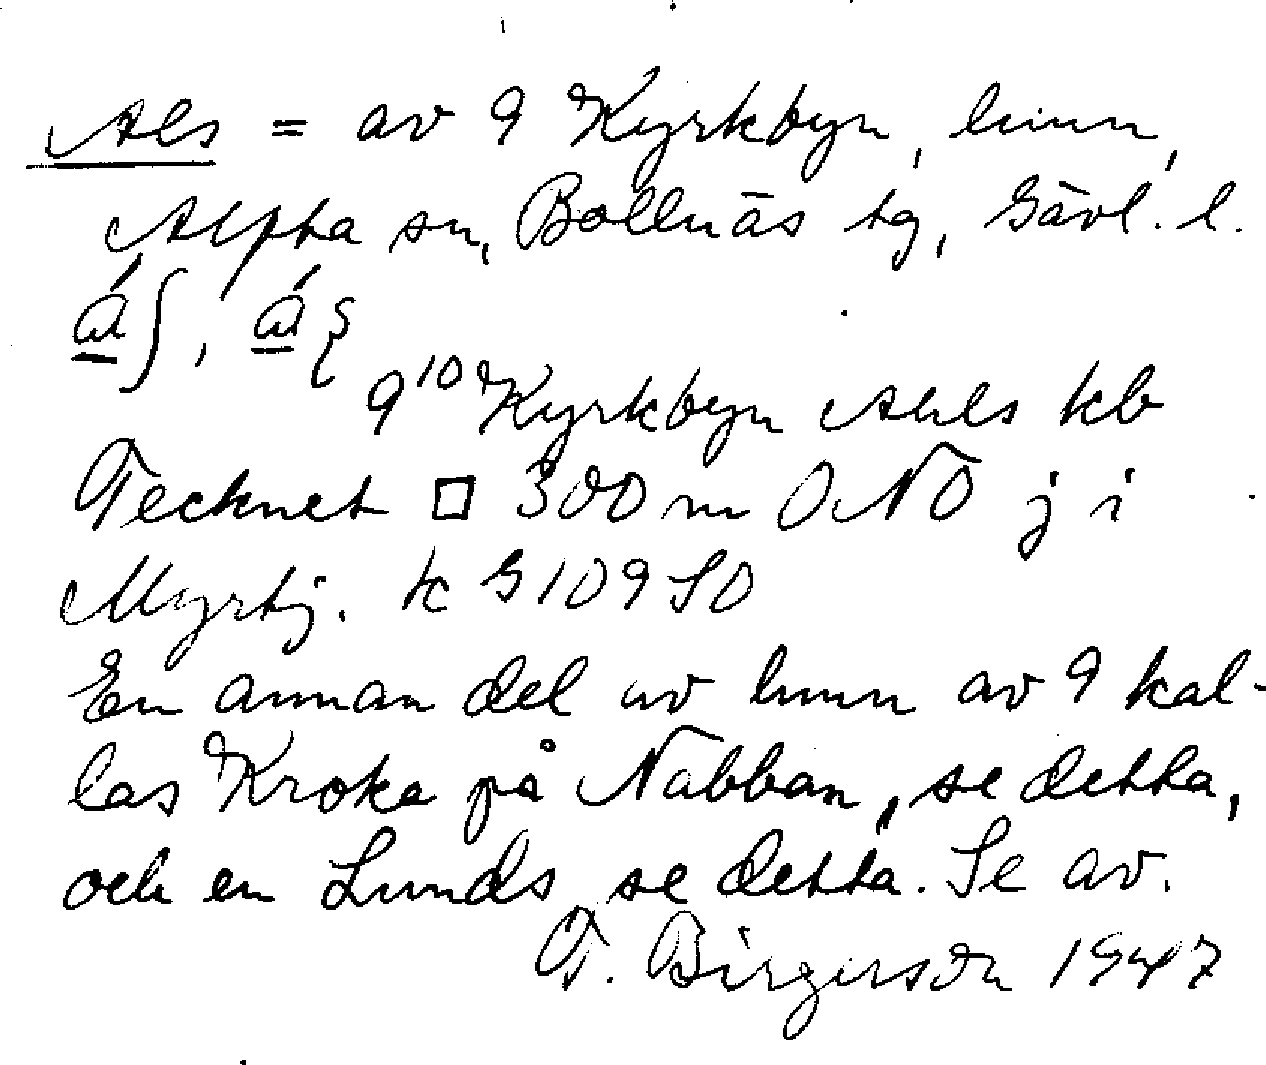 Als = av 9 Kyrkbyn, hmn,
Alfta sn, Bollnäs tg, Gävl. l.
9¹⁰ Kyrkbyn Ahls kb
Tecknet □ 300 m ONO j i
Myrtj. k G 109 SO
En annan del av hmn av 9 kal-
las Kroka på Nabban, se detta,
och en Lunds se detta. Se av.
T. Birgerson 1947